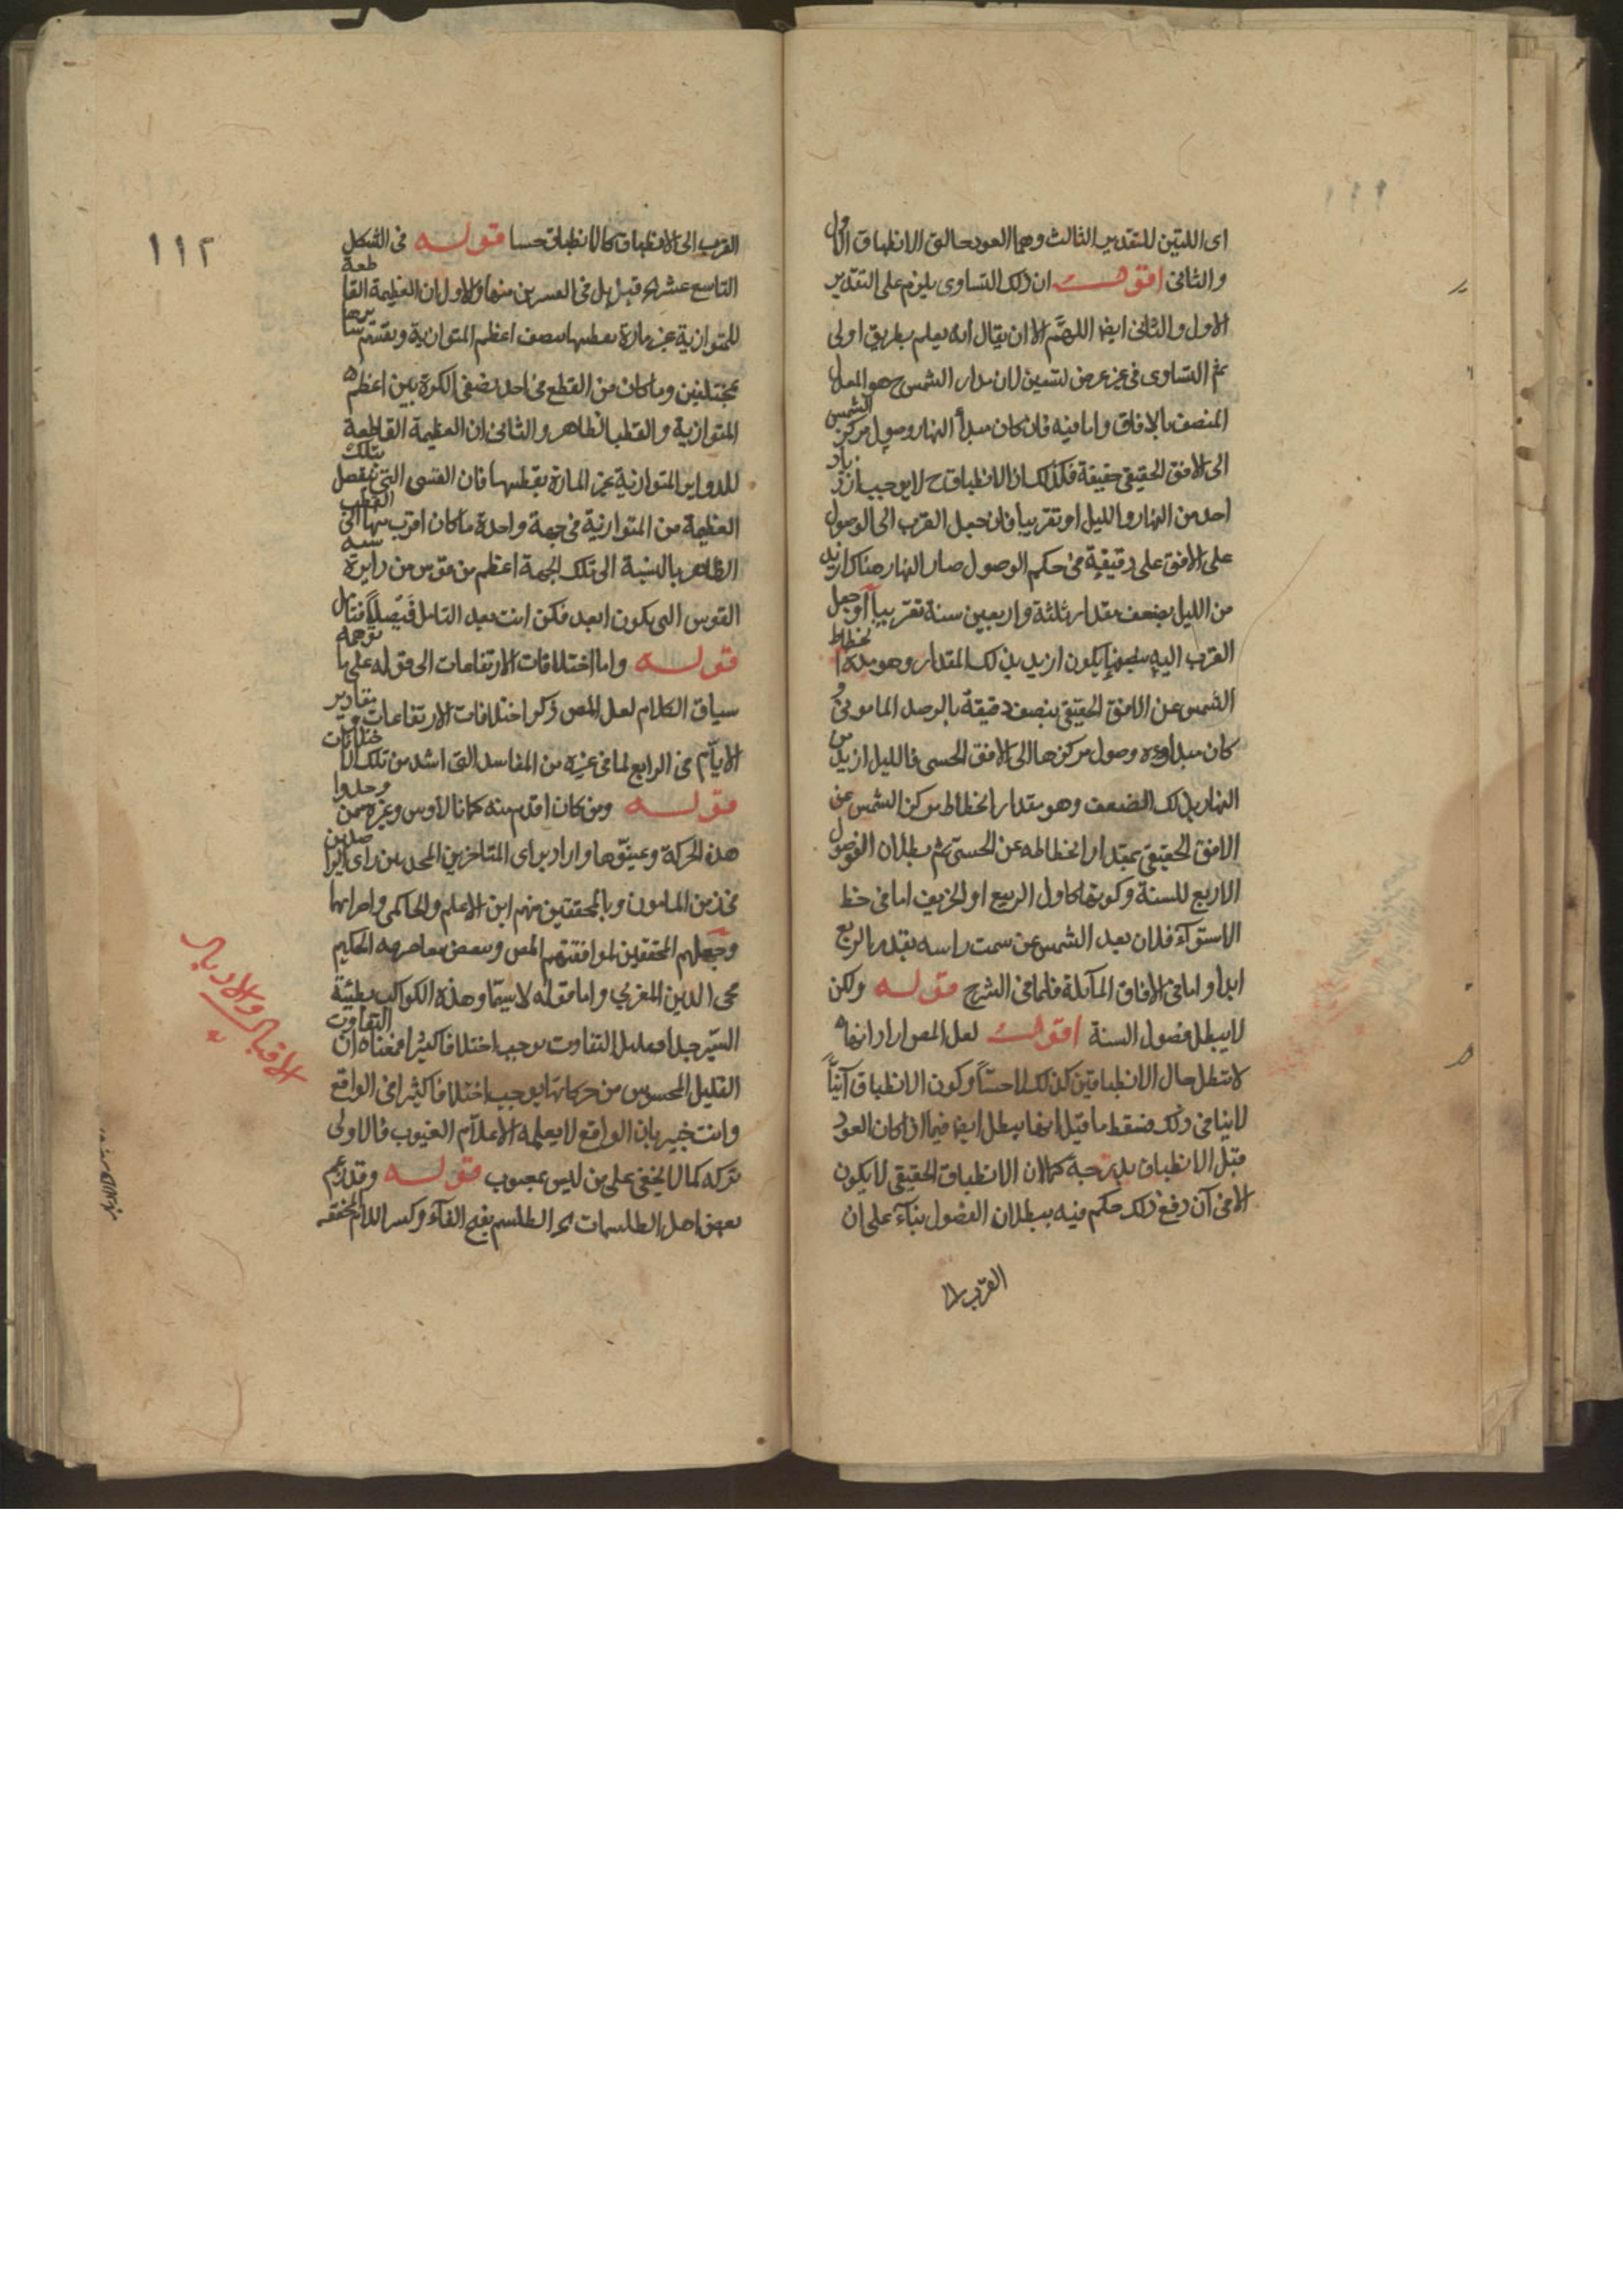 اى اللتين للتقدير الثالث وهما العود حالتى الانطباق الاول
والثانى اقول ان ذلك التساوى يلزم على التقدير
الاول والثانى ايضا اللهم الا ان يقال انه يعلم بطريق اولى
ثم التساوى فى غير عرض تسعين لان مدار الشمس ح هو المعدل
المنصف بالافاق واما فيه فان كان مبدأ النهار وصول مركز الشمس
الى الافق الحقيقى حقيقة فكذلك اذ الانطباق ح لا يوجب ازدياد
احد من النهار والليل او تقريبا فان جعل القرب الى الوصول
على الافق على دقيقة فى حكم الوصول صار النهار هناك ازيد
من الليل بضعف مقدار ثلثة واربعين سنة تقريبا او جعل
القرب اليه يكون ازيد بذلك المقدار وهو مدة انحطاط
الشمس عن الافق الحقيقى بنصف دقيقة بالرصد المامونى و
كان مبداؤه وصول مركزها الى الافق الحسى فالليل ازيد من
النهار بذلك الضعف وهو مقدار انحطاط مركز الشمس عن
الافق الحقيقى بمقدار انحطاطه عن الحسى ثم بطلان الفصول
الاربع للسنة وكونها كاول الربيع او الخريف اما فى خط
الاستوآء فلان بعد الشمس عن سمت راسه بقدر الربع
ابدا واما فى الافاق المآئلة فلما فى الشرح قوله ولكن
لا يبطل فصول السنة اقول لعل المص اراد انها
لا تبطل حال الانطباقين كذلك حسا وكون الانطباق آنيا
لا ينافى ذلك فسقط ما قيل انها يبطل ايضا فيما اذا كان العود
قبل الانطباق بدرجة كما لان الانطباق الحقيقى لا يكون
الا فى آن دفع ذلك حكم فيه ببطلان الفصول بنآء على ان
القرب الى
١١٢
القرب الى الانطباق كالانطباق حسا قوله فى الشكل
التاسع عشر اى قبل بل فى العشرين منها والاول ان العظيمة القاطعة
للمتوازية غير مارة بقطبها تنصف اعظم المتوازية وتقسم سايرها
بمختلفين وما كان من القطع فى احد نصفى الكرة بين اعظم
المتوازية والقطب الظاهر والثانى ان العظيمة القاطعة
للدواير المتوازية غير المارة بقطبها فان القسى التى تفصل تلك
العظيمة من المتوازية فى جهة واحدة ما كان اقرب منها الى القطب
الظاهر بالنسبة الى تلك الجهة اعظم من قوس من دايرة
القوس التى يكون ابعد فكن انت بعد التامل فيصلا فتامل
قوله واما اختلافات الارتفاعات الى قوله على ما توجه
سياق الكلام لعل المص ذكر اختلافات الارتفاعات ومقادير
الايام فى الرابع لما فى غيره من المفاسد التى اشد من تلك الاختلافات
قوله ومن كان اقدم منه كمانالاوس وغيره ممن وجدوا
هذه الحركة وعينوها واراد براى المتاخرين المحدثين راى الراصدين
فى زمن المامون وبالمحققين منهم ابن الاعلم والحاكمى واضرابهما
وجعلهم المحققين لموافقتهم المص وبعض معاصريه الحكيم
محى الدين المغربى واما قوله لا سيما وهذه الكواكب بطيئة
السير جدا فقليل التفاوت يوجب اختلافا كثيرا فمعناه ان التفاوت
القليل المحسوس من حركاتها يوجب اختلافا كثيرا فى الواقع
وانت خبير بان الواقع لا يعلمه الا علام الغيوب فالاولى
تركه كما لا يخفى على من ليس بمحجوب قوله وقد زعم
بعض اهل الطلسمات اى الطلسم بفتح الفآء وكسر اللام المخففة
الاقبال والادبار